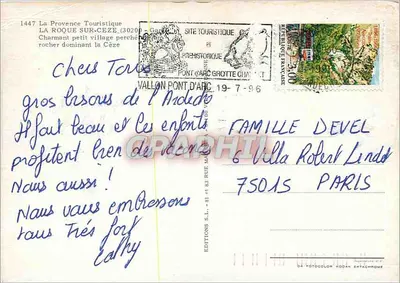 1447 La Provence Touristique
LA ROQUE SUR-CEZE (30200 - Gard)
Charmant petit village perché
rocher dominant la Cèze
SITE TOURISTIQUE
et
PREHISTORIQUE
PONT D'ARC GROTTE CHAUVET
VALLON PONT D'ARC 19-7-96
REPUBLIQUE FRANCAISE
Chers Tous
gros bisous de l'Ardèche
Il fait beau et les enfants
profitent bien des
Nous aussi !
Nous vous embrassons
tous Très fort
Cathy
FAMILLE DEVEL
6 Villa Robert Lindet
75015 PARIS
EDITIONS S.L.
CPAPHIL